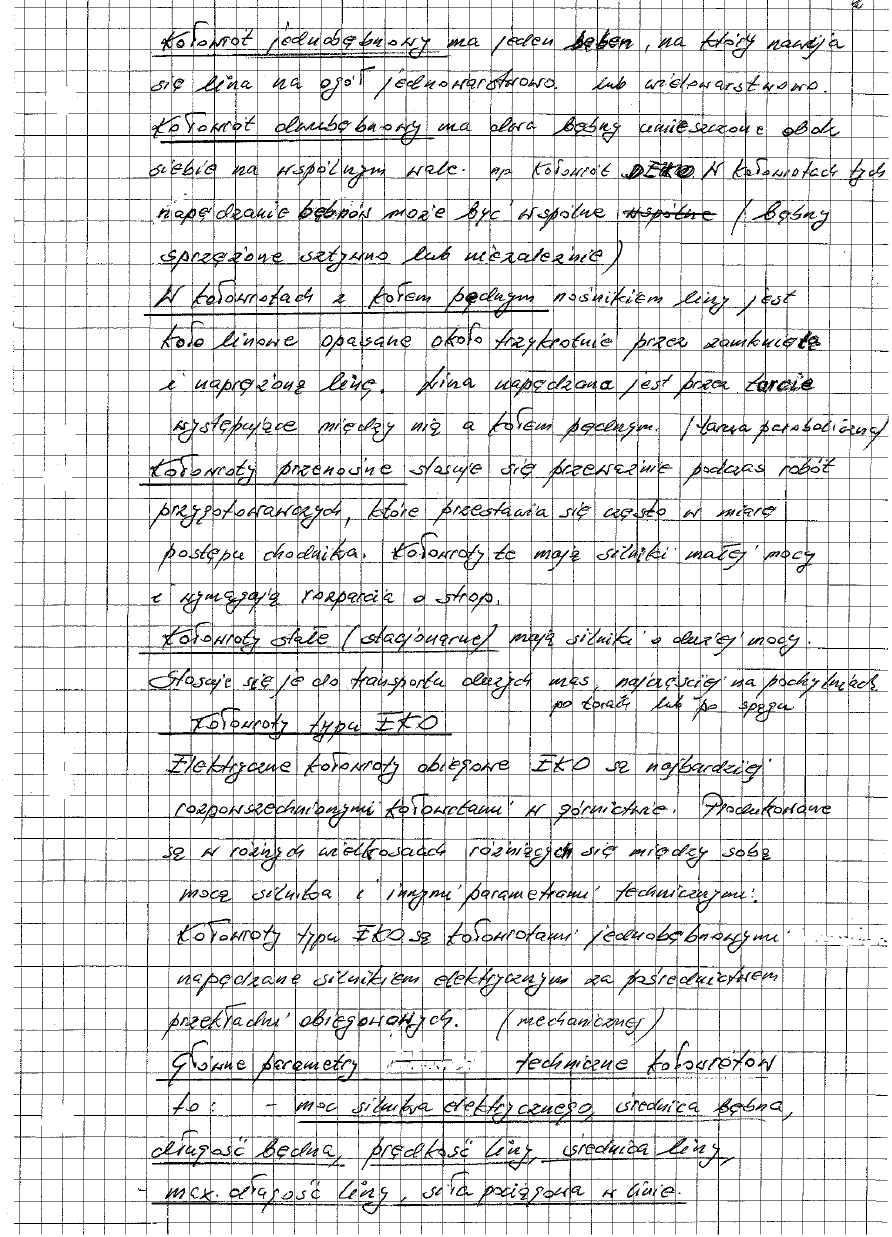 2
Kołowrót jednobębnowy ma jeden bęben, na który nawija
się lina na ogół jednowarstwowo. lub wielowarstwowo.
Kołowrót dwubębnowy ma dwa bębny umieszczone obok
siebie na wspólnym wale. np kołowrót DEKO W kołowrotach tych
napędzanie bębnów może być wspólne wspólne (bębny
sprzężone sztywno lub niezależnie)
W kołowrotach z kołem pędnym nośnikiem liny jest
koło linowe opasane około trzykrotnie przez zamkniętą
i naprężoną linę. Lina napędzana jest przez tarcie
występujące między nią a kołem pędnym. (tarcza paraboliczna)
Kołowroty przenośne stosuje się przeważnie podczas robót
przygotowawczych, które przestawia się często w miarę
postępu chodnika. Kołowroty te mają silniki małej mocy
i wymagają rozparcia o strop.
Kołowroty stałe (stacjonarne) mają silniki o dużej mocy.
Stosuje się je do transportu dużych mas, najczęściej na pochylniach
po torach lub po spągu
Kołowroty typu EKO
Elektryczne kołowroty obiegowe EKO są najbardziej
rozpowszechnionymi kołowrotami w górnictwie. Produkowane
są w różnych wielkościach różniących się między sobą
mocą silnika i innymi parametrami technicznymi.
Kołowroty typu EKO są kołowrotami jednobębnowymi
napędzane silnikiem elektrycznym za pośrednictwem
przekładni obiegowych. (mechanicznej)
Główne parametry techniczne kołowrotów
to: - moc silnika elektrycznego, średnica bębna,
długość bębna, prędkość liny, średnica liny,
max. długość liny, siła pociągowa w linie.